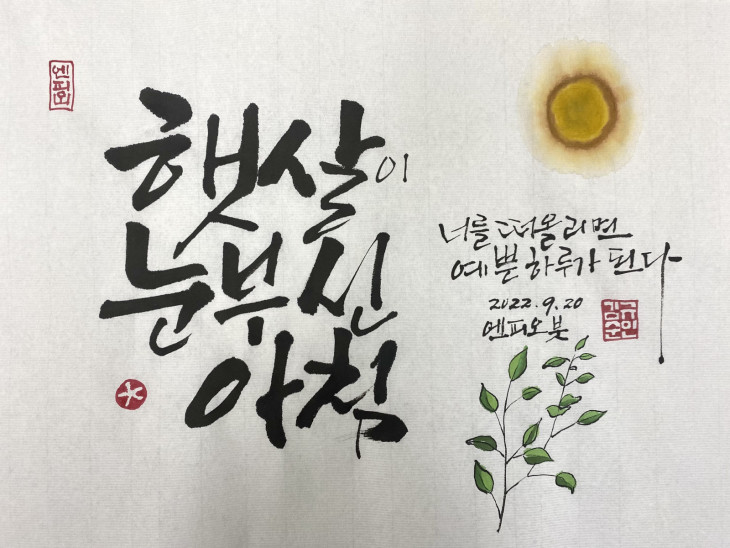 엔피오
햇살이
눈부신
아침
너를 떠올리면
예쁜 하루가 핀다
2022.9.20
엔피오 붓